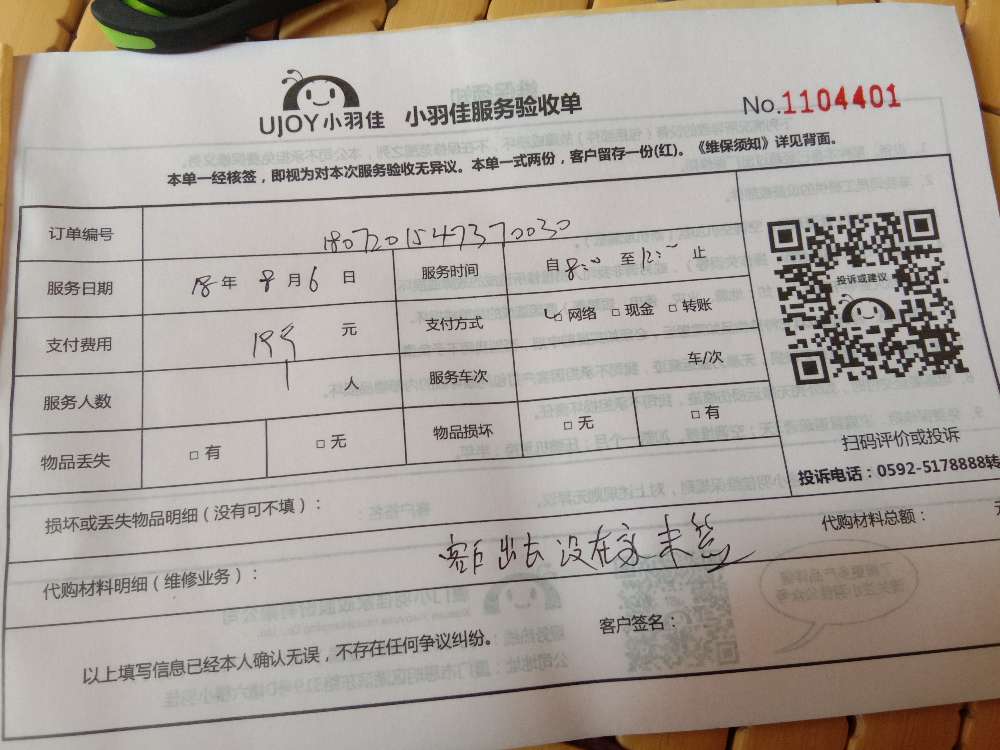 UJOY小羽佳 小羽佳服务验收单 No.1104401
本单一经核签，即视为对本次服务验收无异议。本单一式两份，客户留存一份(红)。《维保须知》详见背面。
订单编号 1807201547370030
服务日期 18年 8月6日 服务时间 自8:00至12:00止
支付费用 元 支付方式 网络 □现金 □转账
服务人数 1人 服务车次 车/次
物品丢失 □有 □无 物品损坏 □无 □有
投诉或建议
扫码评价或投诉
投诉电话：0592-5178888转
损坏或丢失物品明细（没有可不填）：
代购材料明细（维修业务）： 代购材料总额：
客户出去没在家未签
以上填写信息已经本人确认无误，不存在任何争议纠纷。 客户签名：